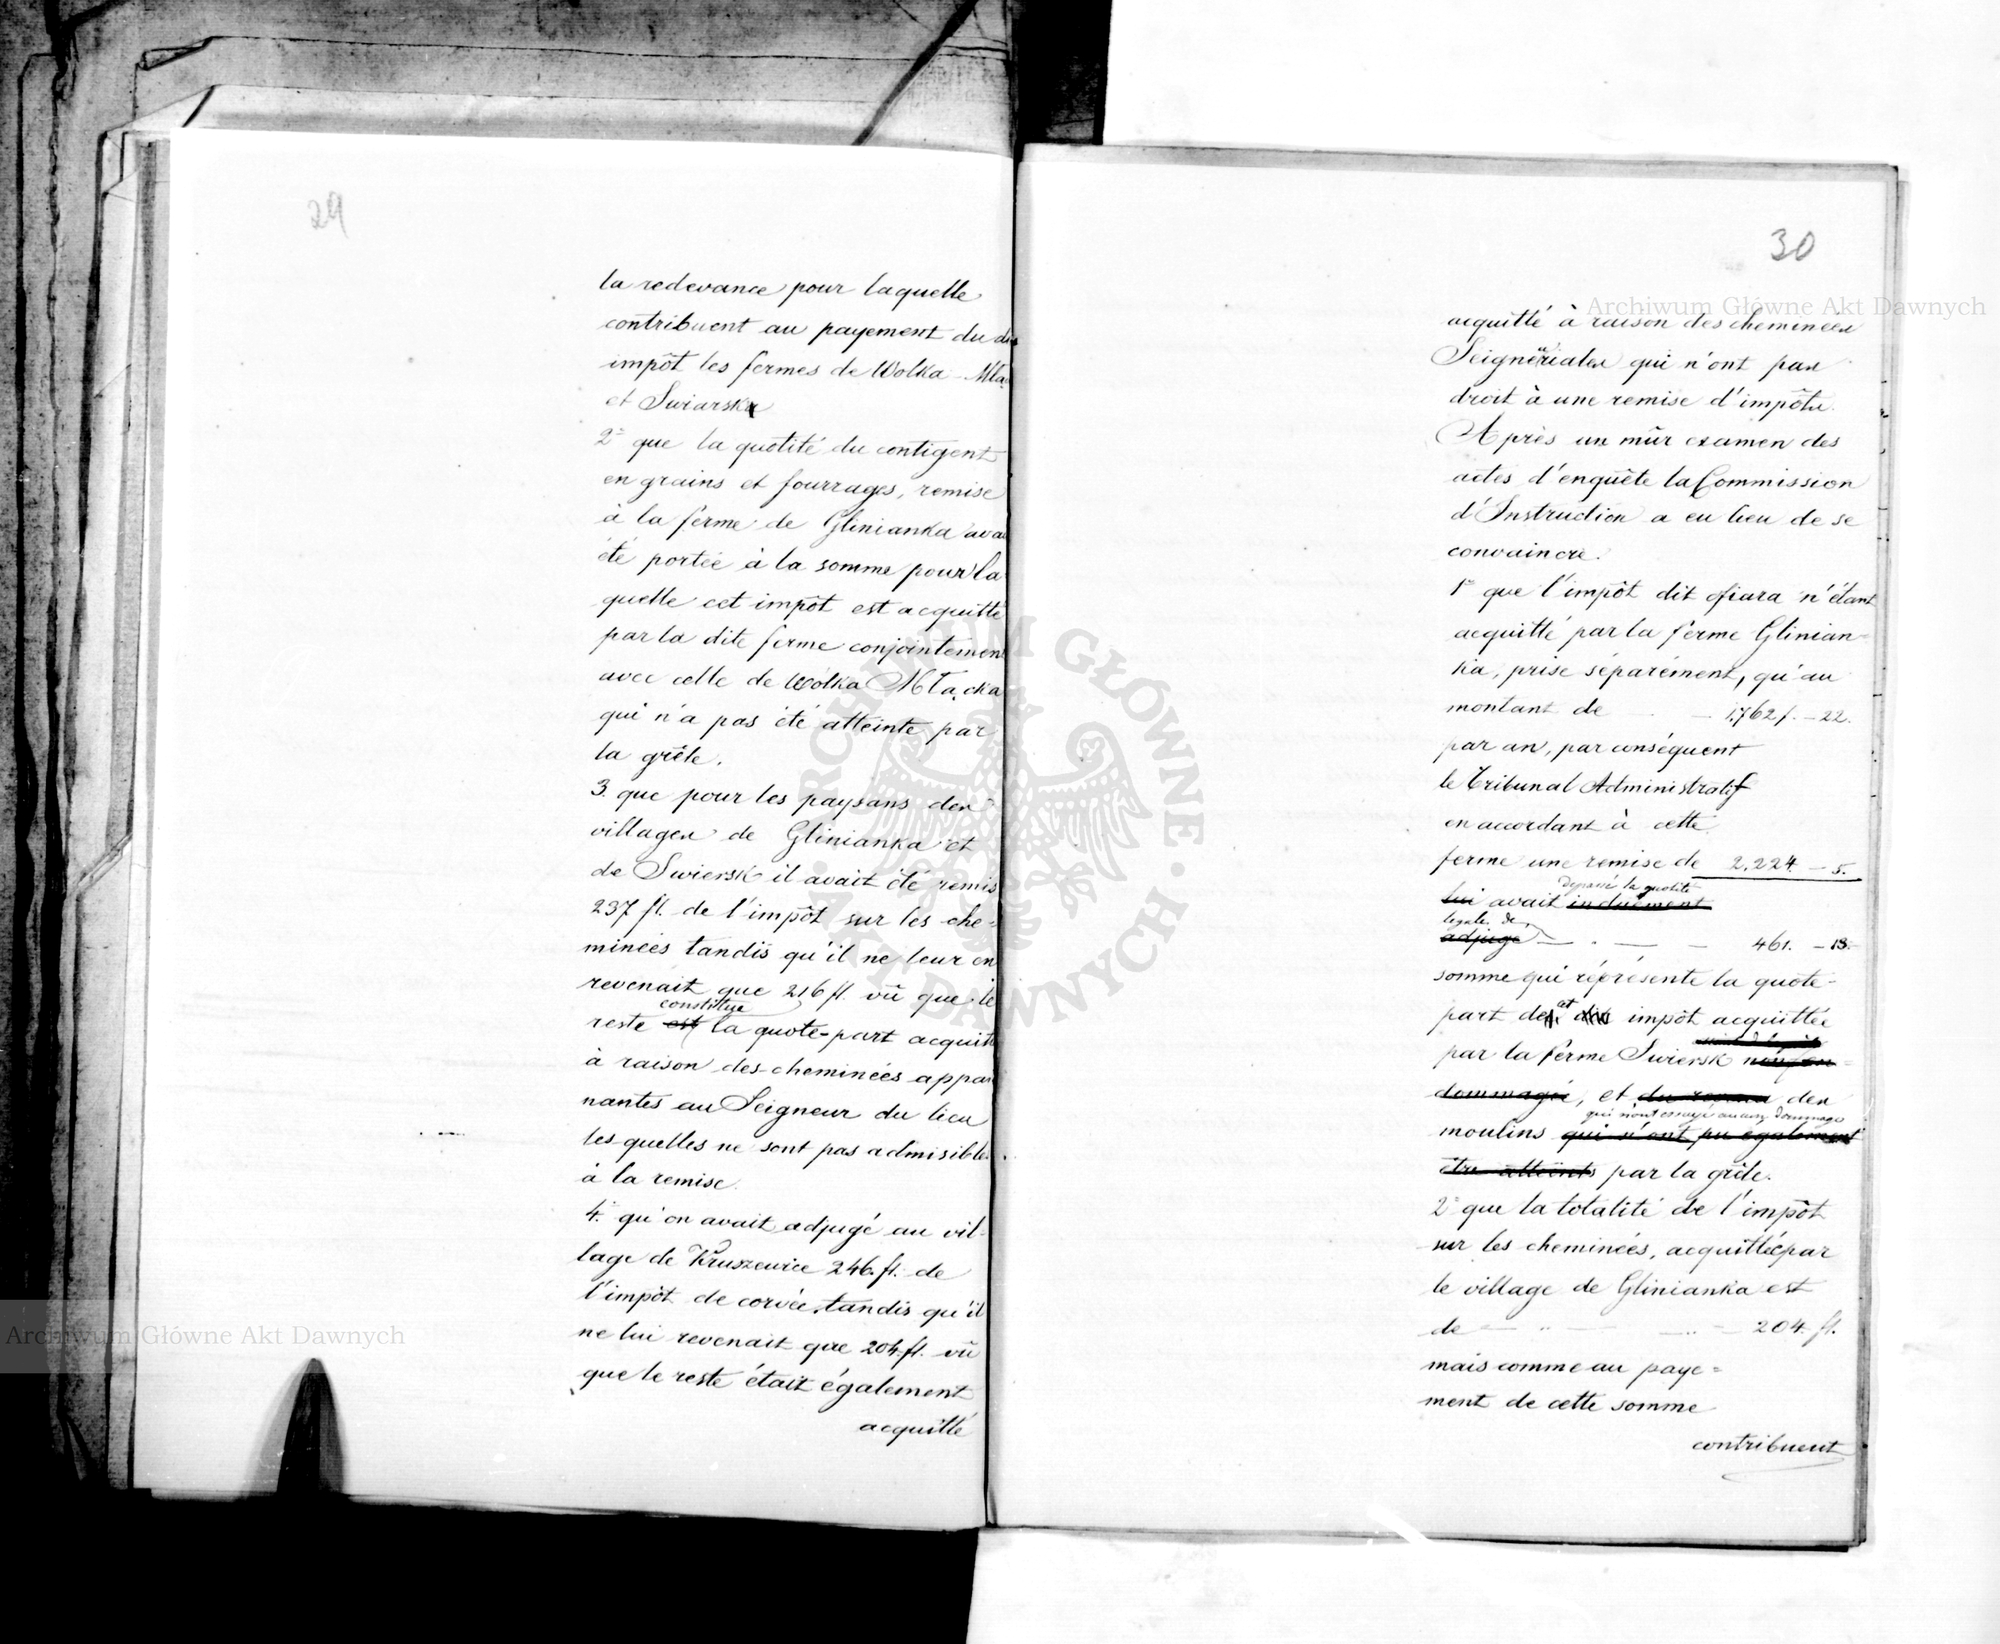 29
la redevance pour laquelle
contribuent au payement du dit
impôt les fermes de Wolka Mła
et Swiersk
2° que la quotité du contigent
en grains et fourrages, remise
à la ferme de Glinianka avai
été portée à la somme pour la
quelle cet impôt est acquitté
par la dite ferme conjointement
avec celle de Wólka Młącka
qui n'a pas été atteinte par
la grêle.
3. que pour les paysans des
villages de Glinianka et
de Swiersk il avait été remis
237 fl. de l'impôt sur les che-
minées tandis qu'il ne leur en
revenait que 216 fl. vû que le
constitue
reste est la quote-part acquit
à raison des cheminées appar
nantes au Seigneur du lieu
les quelles ne sont pas admisibles
à la remise.
4. qu'on avait adjugé au vil-
lage de Kruszewice 246. fl. de
l'impôt de corvée, tandis qu'il
ne lui revenait que 204. fl. vû
que le reste était également
acquitté
30
acquitté à raison des cheminées
Seigneuriales qui n'ont pas
droit à une remise d'impôts.
Après un mûr examen des
actes d'enquête la Commission
d'Instruction a eu lieu de se
convaincre.
1° que l'impôt dit ofiara n'étant
acquitté par la ferme Glinian-
ka, prise séparément, qu'au
montant de — 1,762 f. — 22.
par an, par conséquent
le Tribunal Administratif
en accordant à cette
ferme une remise de 2,224. — 5.
depassé la quotité
lui avait indûement
légale de
adjugé — . — — 461. — 13.
somme qui réprésente la quote-
part de cet impôt acquittée
par la ferme Swiersk
dommagée, et des
qui n'ont essuyé aucun dommage
moulins qui n'ont pu également
être atteints par la grêle.
2° que la totalité de l'impôt
sur les cheminées, acquittée par
le village de Glinianka est
de — .. — — .. — 204 fl.
mais comme au paye=
ment de cette somme
contribuent
Archiwum Główne Akt Dawnych
Archiwum Główne Akt Dawnych
ARCHIWUM GŁÓWNE · AKT DAWNYCH ·